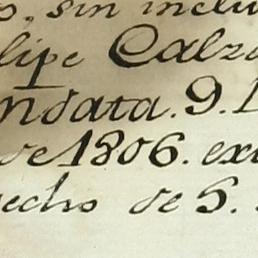 o, sin inclu
lipe Calza
ndata. 9. L
de 1806. ext
echo de S.